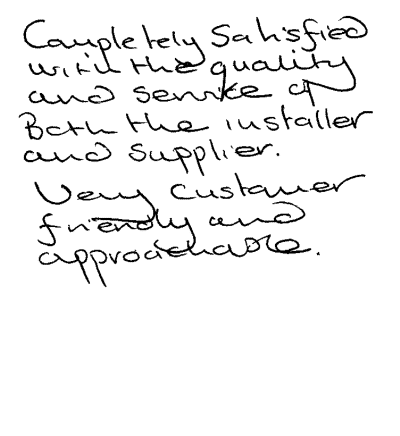 Completely Satisfied
with the quality
and service of
Both the installer
and supplier.
Very customer
friendly and
approachable.